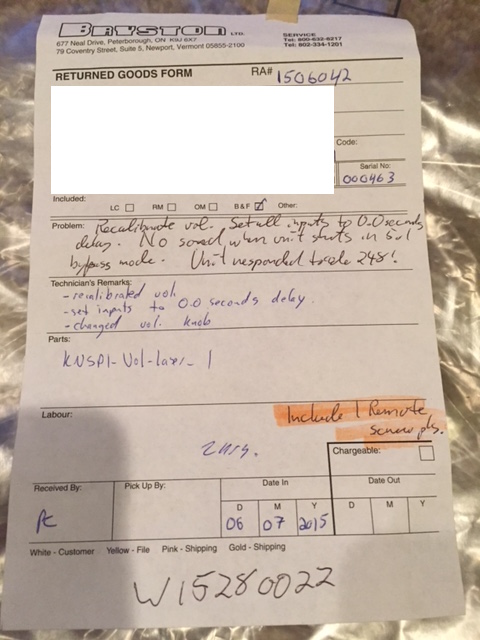 BRYSTON LTD.
677 Neal Drive, Peterborough, ON K9J 6X7
79 Coventry Street, Suite 5, Newport, Vermont 05855-2100
SERVICE
Tel: 800-632-8217
Tel: 802-334-1201
RETURNED GOODS FORM RA# 1506042
Code:
Serial No:
000463
Included:
LC RM OM B & F Other:
Problem: Recalibrate vol. Set all inputs to 0.0 seconds
delay. No sound when unit starts in 5.1
bypass mode. Unit responded to code 248!
Technician's Remarks:
- recalibrated vol.
- set inputs to 0.0 seconds delay.
- changed vol. knob
Parts:
KNSP1-Vol-laser_1
Labour:
Include 1 Remote
screw pls.
Chargeable:
Received By: Pick Up By: Date In Date Out
D M Y D M Y
06 07 2015
White - Customer Yellow - File Pink - Shipping Gold - Shipping
W15280022